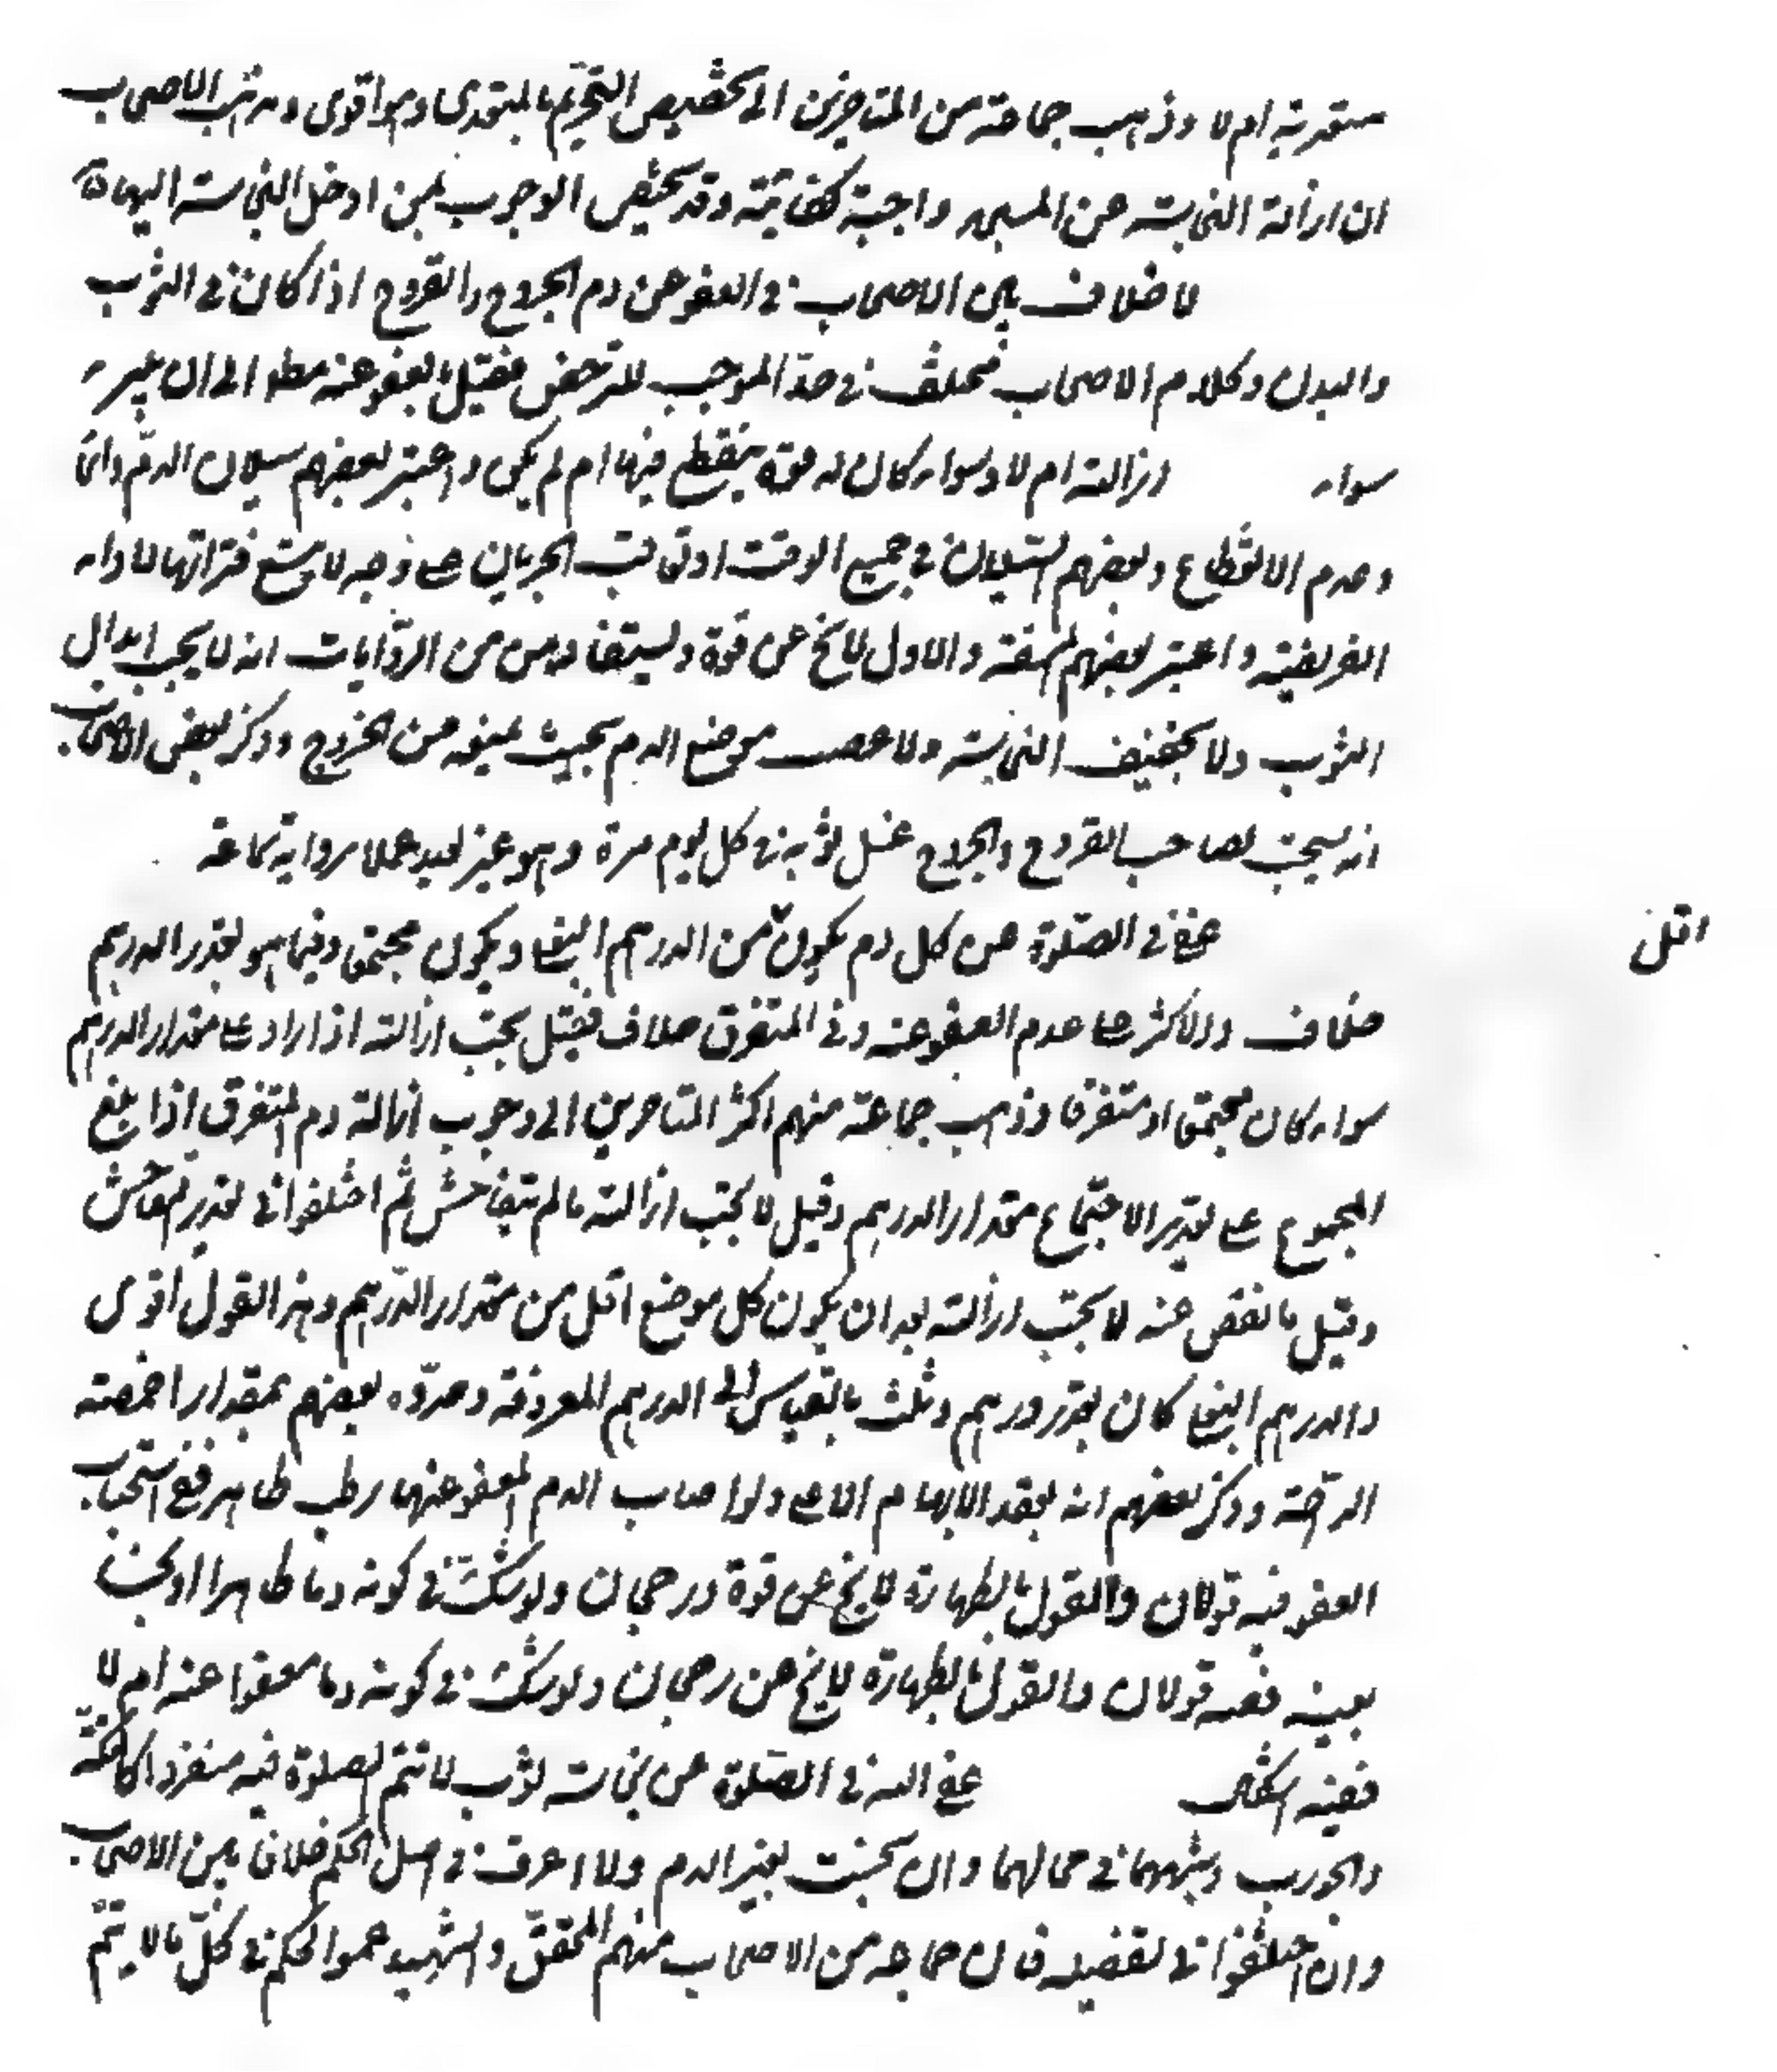 متعدية ام لا وذهب جماعة من المتاخرين الى تخصيص التحريم بالمتعدى وهو اقوى ومذهب الاصحاب
ان ازالة النجاسة عن المسجد واجبة كفائية وقد يختص الوجوب بمن ادخل النجاسة اليها
لا خلاف بين الاصحاب فى العفو عن دم الجروح والقروح اذا كان فى الثوب
والبدن وكلام الاصحاب مختلف فى حد الموجب للترخص فقيل بالعفو عنه مطلقا الى ان يبرء
سواء ازالته ام لا وسواء كان له فترة ينقطع فيها ام لم يكن واعتبر بعضهم سيلان الدم دائما
وعدم الانقطاع وبعضهم السيلان فى جميع الوقت او تعاقب الجريان على وجه لا يتسع فتراتها لاداء
الفريضة واعتبر بعضهم المشقة والاول لا يخ عن قوة ويستفاد من الروايات انه لا يجب ابدال
الثوب ولا تخفيف النجاسة ولا عصب موضع الدم بحيث يمنعه من الخروج وذكر بعض الاصحاب
انه يستحب لصاحب القروح والجروح غسل ثوبه فى كل يوم مرة وهو غير بعيد عملا برواية سماعة
عفى فى الصلوة عن كل دم يكون من الدرهم البغلى ويكون مجتمعا وفيما هو بقدر الدرهم
اقل
خلاف والاكثر على عدم العفو عنه وفى المتفرق خلاف فقيل يجب ازالته اذا زاد على مقدار الدرهم
سواء كان مجتمعا او متفرقا وذهب جماعة منهم اكثر المتاخرين الى وجوب ازالة دم المتفرق اذا بلغ
المجموع على تقدير الاجتماع مقدار الدرهم وقيل لا يجب ازالته ما لم يتفاحش ثم اختلفوا فى تقدير التفاحش
وقيل بالعفو عنه لا يجب ازالته بعد ان يكون كل موضع اقل من مقدار الدرهم وهذا القول اقوى
والدرهم البغلى كان بقدر درهم وثلث بالقياس الى الدرهم المعروفة وحدّده بعضهم بمقدار اخمصه
الراحة وذكر بعضهم انه بعقد الابهام الاعلى ولو اصاب الدم المعفو عنها رطب طاهر ففى استصحاب
العفو فيه قولان والقول بالطهارة لا يخ عن قوة ورجحان ولو شك فى كونه دما طاهرا او نجسا
بعينه ففيه قولان والقول بالطهارة لا يخ عن رجحان ولو شك فى كونه دما معفوا عنه ام لا
ففيه اشكال عفى الله فى الصلوة عن نجاسة ثوب لا تتم الصلوة فيه منفردا كالتكة
والجورب وشبههما فى محالهما وان نجست بغير الدم ولا اعرف فى اصل الحكم خلافا بين الاصحاب
وان اختلفوا فى تفصيله فان جماعة من الاصحاب منهم المحقق والشهيد عمموا الحكم فى كل ما لا يتم